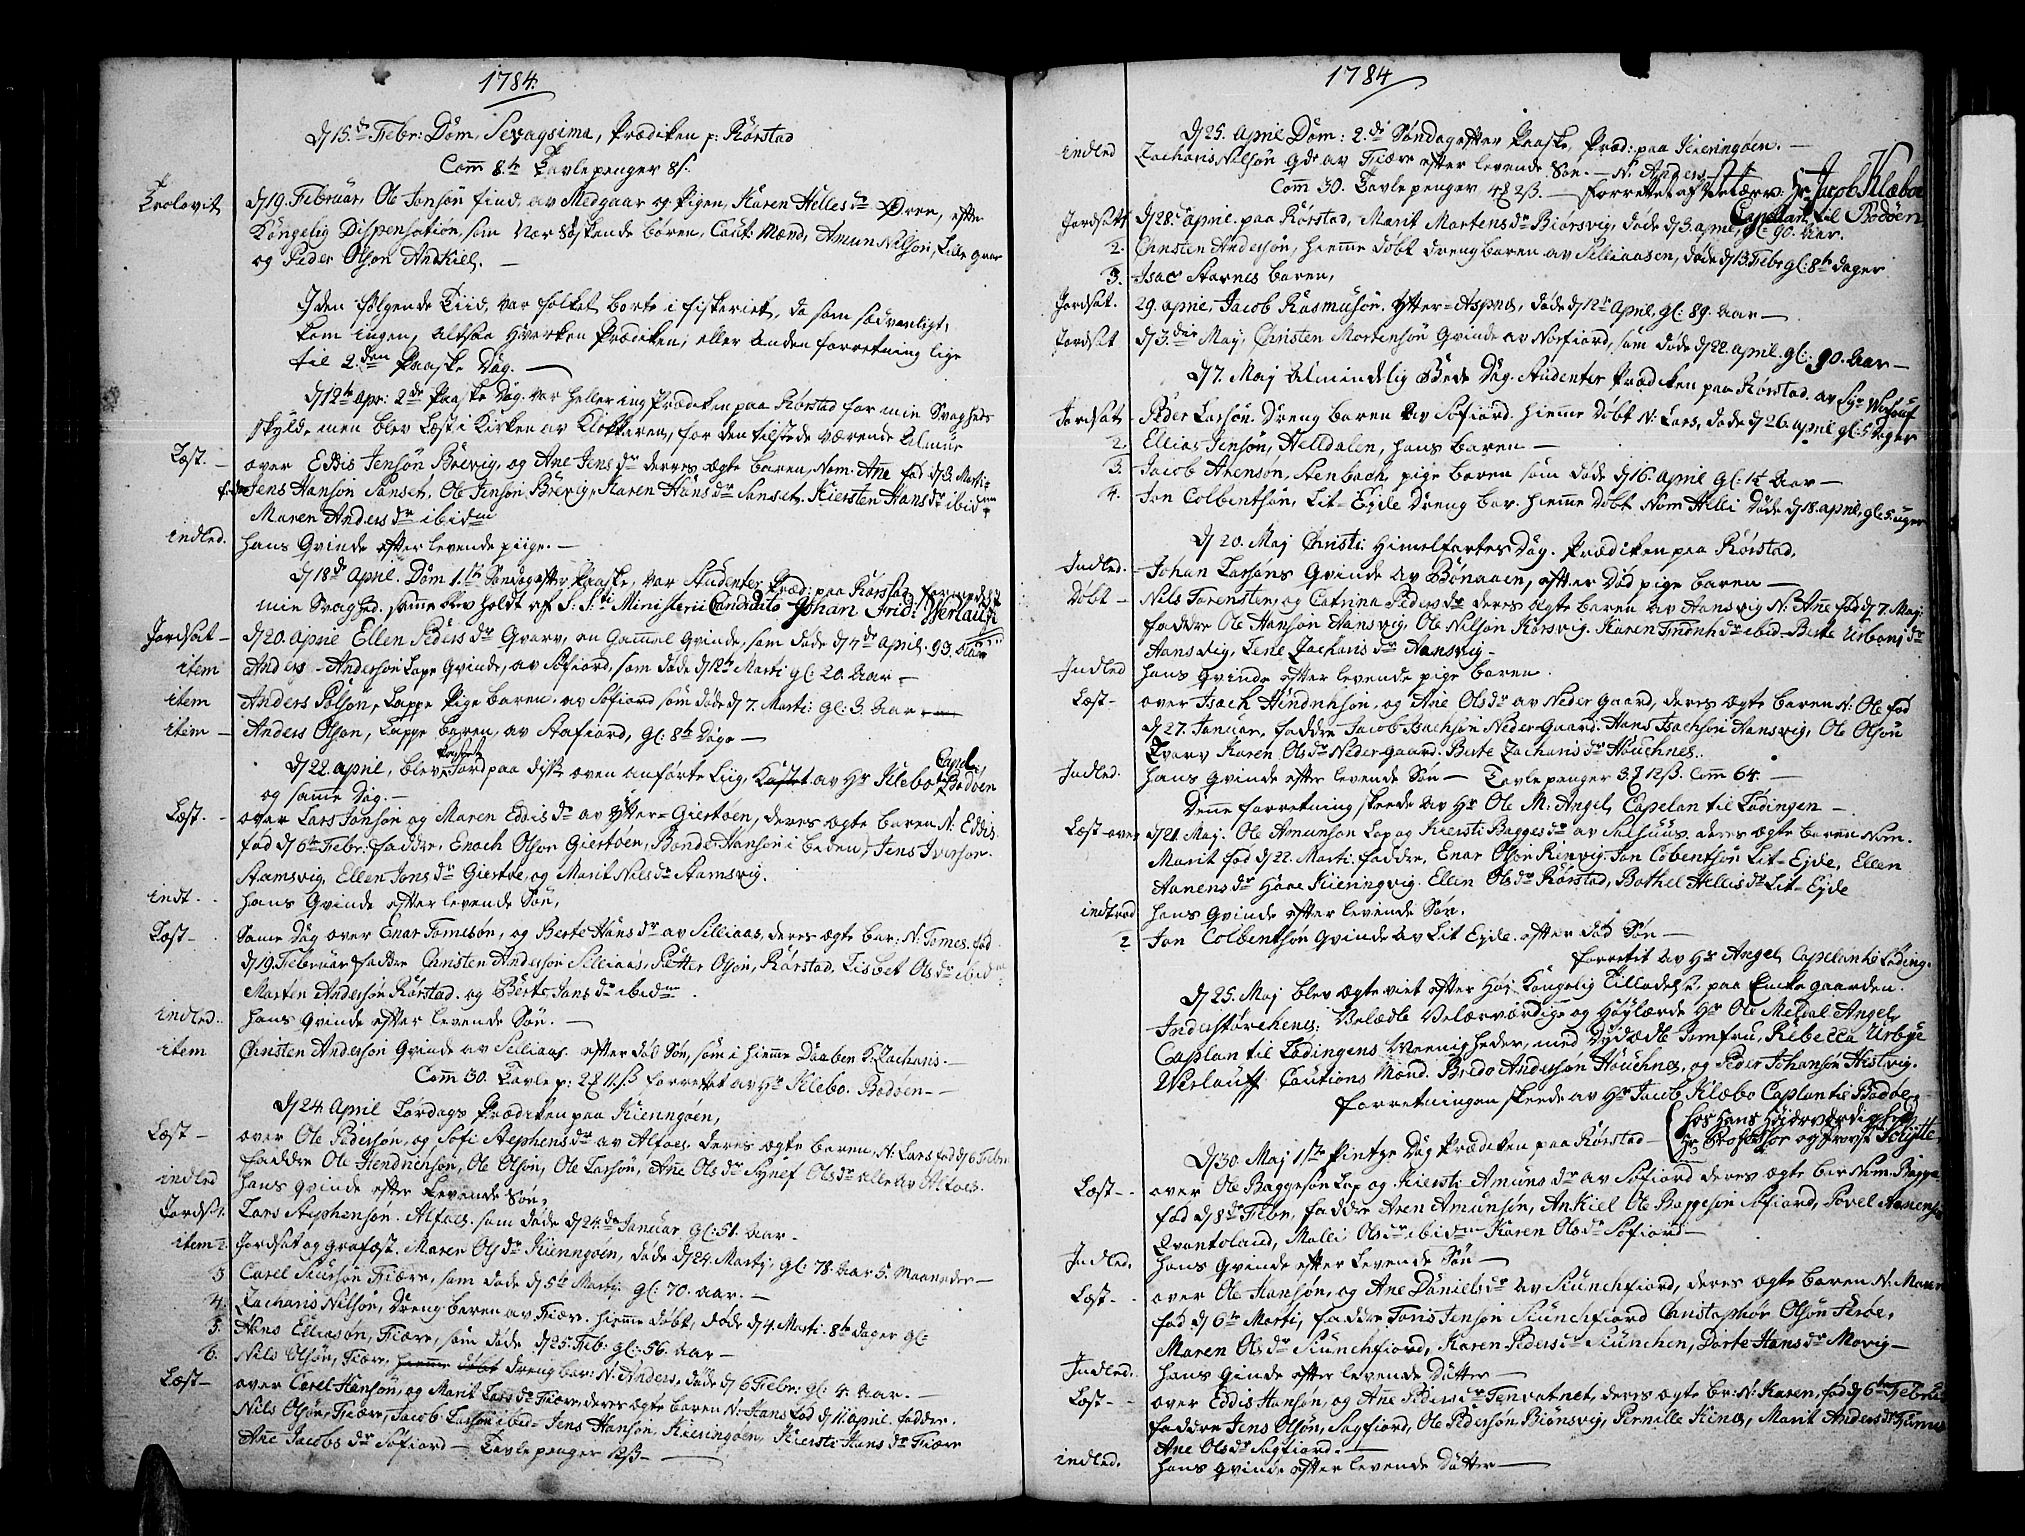 1784.
D/15.de Febr: Dom, Sexagsima, Prædiken p: Rørstad
Com̄ 8te Tavlepenger 8ß.
Trolovit
D/19. Februar, Ole Jonsøn find, av Medgaar og Pigen, Karen Hellesdr Øren, efter
Kongelig Dispensation, som Nær Søskende børen, Caut: Mænd, Amun Nilsøn, Lille gaar
og Peder Olson Andkiel. —
I den følgende Tiid, var folket borte i fiskeriet, da som sædvenligt,
kom ingen, altsaa hverken Prædiken, eller anden forretning lige
til 2.den Paaske Dag. —
D/12te Apr: 2de Paaske Dag. var heller ing Prædiken paa Rørstad for min Svagheds
skyld, men blev Læst i Kirken av Klokkeren, for den tilstede værende Almue
Læst. —
over Eddis Jensøn Brevig, og Ane Jensdr deres ægte baren, Nom. Ane fød d/3. Marti
Jens Hansøn Sanset, Ole Jensøn Brevig, Karen Hansdr Sanset, Kiersten Hansdr ibidem
Maren Andersdr ibidm
indled.
hans Qvinde efter levende piige. —
D/18de April. Dom 1.ste Søndag efter Paaske, var Studenter Præd: paa Rørstad formedelst
min Svaghed. samme blev holdt af S. S.ti Ministerii Candidato Johan Frid: Werlauff
Jordsat —
D/20. April Ellen Pedersdr Qvarv, en Gammel Qvinde, som døde d/4de April. 93. Aar
item
Anders Anderson Lape Qvinde, av Sofiord, som døde d/12te Marti gl: 20. Aar —
item
Anders Polson, Lappe Pige baren. av Sofiord som døde d/7. Marti: gl: 3. Aar —
item —
Anders Olson, Lappe baren, av Stafiord, gl: 8te Dage —
D/22. April, blev Kastet Jord paa disse oven anførte Liig, Kastet av Hr Klebo Capl. t. Bodøen
og samme Dag. —
Læst. —
over Lars Jonson og Maren Eddisdr av Ytter-Giertøen, deres ægte baren N: Eddis.
fød d/6te Febr: faddre, Enoch Olson Giertøen, Bonde Hansøn ibidem, Jens Iverson
Stamsvig, Ellen Jonsdr Giertøe, og Marit Nilsdr Stamsvig.
indt. —
hans Qvinde efter levende Søn,
Læst —
Same Dag over Enar Tomesøn, og Berte Hansdr av Selliaas, deres ægte bar: N: Tomes. fød
D/19. Februar faddre Christen Andersøn Selliaas, Petter Olson, Rørstad, Lisbet Olsdr ibidm
Marten Andersøn Rørstad. og Berte Jansdr ibidm
indled.
hans Qvinde efter levende Søn. —
item
Christen Anderson Qvinde av Selliaas. efter død Søn, som i hieme Daaben h. Zacharis. —
Com̄ 30. Tavle p: 2 11.ß forretet av Hr Klebo. Bodøen —
D/24 April Lørdags Prædiken paa Kierringøen,
Læst —
over Ole Pedersøn, og Sofi Stephensdr av Alfoes deres ægte baren, N: Lars fød d/6 Febr
faddre Ole Hendricksøn, Ole Olsøn, Ole Larsøn, Ane Olsdr Synef Olsdr alle av Alfoes.
indled
hans qvinde efter Levende Søn,
Jordst.
Lars Stephensøn. Alfoes. som døde d/24de Januar. gl: 51. Aar —
item 2.
Jordsat og Grafæst. Maren Olsdr Kierringøen, døde d/24. Martij, gl: 78. Aar 5. Maaneder —
3
Carel Siursøn Fiære, som døde d/5te Martij: gl: 70. aar. —
4.
Zacharis Nilsøn, Dreng baren av Fiære. hieme døbt, døde d/4. Marti. 8te dager gl:
5.
Hans Elliasøn, Fiære, som døde d/25. Feb: gl: 56. Aar —
6.
Nils Olsøn, Fiære, hieme døbt dreng bar: N. Anders, døde d/6 Febr: gl: 4. Aar. —
Læst —
over Carel Hansøn, og Marit Larsdr Fiære, deres ægte baren N: Hans fød d/11 april. faddre.
Nils Olsøn, Fiære, Jacob Larsøn ibid: Jens Hansøn, Kierringøen, Kiersti Hansdr Fiære
Ane Jacobsdr Sofiord — Tavle penger 12ß —
1784
D/25. April Dom: 2.de Søndag efter Paaske, Præd: paa Kierringøen. —
indled
Zacharis Nilsøn Qde av Fiære efter levende Søn. — N: Anders
Com̄ 30. Tavle penger 4 2ß — forrettet af Hr Jacob Klæboe
Capelan til Bodøen
Jordsatt
D/28. April. paa Rørstad, Marit Martensdr Biørsvig, døde d/3. april, gl: 90. Aar.
2.
Christen Andersøn, hieme døbt dreng baren av Selliaasen, døde d/13. Febr gl: 8te dager
3.
Isac Starnes baren,
Jordsat.
29. april, Jacob Rasmusøn. Ytter-Aspnes, døde d/12te April, gl: 89. Aar —
Jordsat
D/3.die Maj, Christen Mortensøn Qvinde av Norfiord, som døde d/22. april. gl: 90. Aar —
D/7. Maj Almindelig Bede Dag. Studenter Prædiken paa Rørstad. av Sr Werlauf
Jordsat
Peder Larsøn. Dreng baren av Sofiord. hieme døbt N: Lars, døde d/26. april gl: 5 dager
2.
Ellias Jensøn, Helldalen, hans baren —
3.
Jacob Arensøn, Stenbach, pige baren som døde d/16. april gl: 1½ Aar —
4.
Jon Colbentsøn, Lit-Ejde Dreng bar. hieme døbt Nom Helli døde d/18. april, gl: 5. uger
D/20. Maj Christi Himelfartes Dag. Prædiken paa Rørstad.
Indled.
Johan Larsøns Qvinde av Bonaaen, efter Død pige baren —
Døbt —
Nils Torensten, og Catrina Pedersdr deres ægte baren av Hansvig N: Ane fød d/7. Maj:
faddre Ole Hansøn Hansvig, Ole Nilsøn Korsvig. Karen Findrichdr ibid. Berte Urbansdr
Hansvig, Lene Zacharisdr Hansvig —
Indled
hans Qvinde efter levende pige baren.
Læst —
over Isach Hindrichsøn, og Ane Olsdr av Neder gaard, deres ægte baren N: Ole fød
D/27. Januar, faddre Jacob Isachsøn Neder-Gaard. Hans Isachsøn Hansvig, Ole Olsøn
Qvarv Karen Olsdr Neder-gaard. Berte Zacharisdr Høuchnes.
Indled.
hans Qvinde efter levende Søn — Tavle penger 3. 12ß. Com̄ 64. —
Denne forretning skeede av Hr Ole M: Angel, Capelan til Lødingen —
Læst over
D/21. Maj. Ole Amunson Lap og Kiersti Baggesdr av Salhuus. deres ægte baren Nom.
Marit fød d/22. Marti. faddre, Enar Olsøn Rinvig. Jon Cobentsøn Lit-Ejde, Ellen
Aanensdr Haae Kierringvig. Ellen Olsdr Rørstad, Bothel Hellisdr Lit-Ejde
indted
hans Qvinde efter levende Søn.
2
Jon Colbentsøn Qvinde av Lit Ejde. efter død Søn —
forretit av Hr Angel, Capelan til Løding.
D/25. Maj blev ægteviet efter Høj Kongelig Tilladelse. paa Enkegaarden.
Inderstørchenes: Velædle Velærværdige og Høylærde Hr Ole Meldal Angel,
Caplan til Lødingens Meenigheder, med Dydædle Jomfru, Rebecca Urbye
Werlauff. Cautions Mænd. Bredo Andersøn Høuchnes, og Peder Johansøn Hestvig.
forretningen skeede av Hr Jacob Klæbo Caplan til Bodøe,
hos hans Høiærværdighed
Hr Professor og Provst Schytte.
D/30. Maj 1ste Pintze Dag Prædiken paa Rørstad —
Læst —
over Ole Baggesøn Lap og Kiersti Amunsdr av Sofiord deres ægte bar Nom. Bagge
fød d/8de Febr, faddre Aren Amunsøn, Ankiel Ole Baggesøn Sofiord, Povel Aanensøn
Qvantoland, Malli Olsdr ibidm Karen Olsdr Sofiord —
Indled.
hans Qvinde efter levende Søn —
Læst —
over Ole Hansøn, og Ane Danielsdr av Siunchfiord, deres ægte baren N: Maren
fød d/6te Marti, faddre Tøris Jensøn Siunchfiord Christophør Olsøn Færøe,
Maren Olsdr Siunchfiord, Karen Pedersdr Siunchen, Dorte Hansdr Movig —
Indled.
hans Qinde efter levende Datter —
Læst —
over Eddis Hansøn, og Ane Pedersdr Tenvatnet, deres ægte br: N: Karen, fød d/6te Februar
faddre Jens Olsøn, Sagfiord, Ole Pedersøn Biønsvig, Pernille Kines, Marit Andersdr
Ane Olsdr Sagfiord. —
indled.
hans Qvinde efter levende Datter —